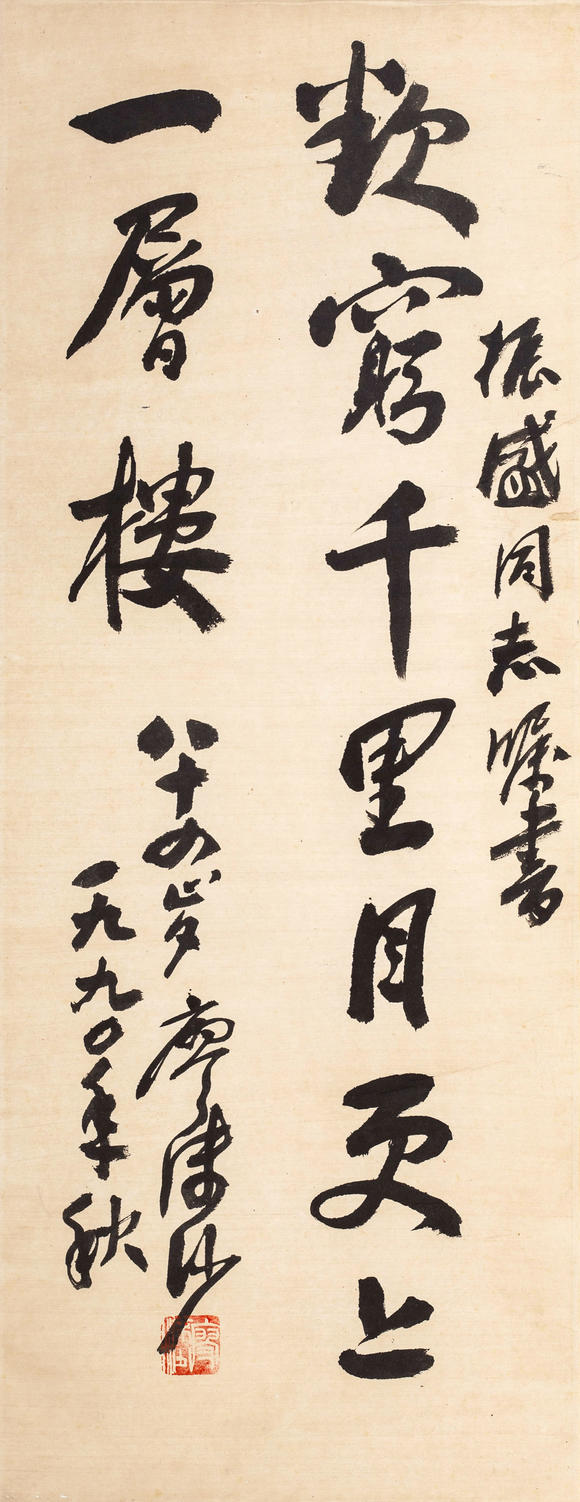 振盛同志嘱書
欲窮千里目更上
一層樓
八十四岁 廖沫沙
一九九〇年秋